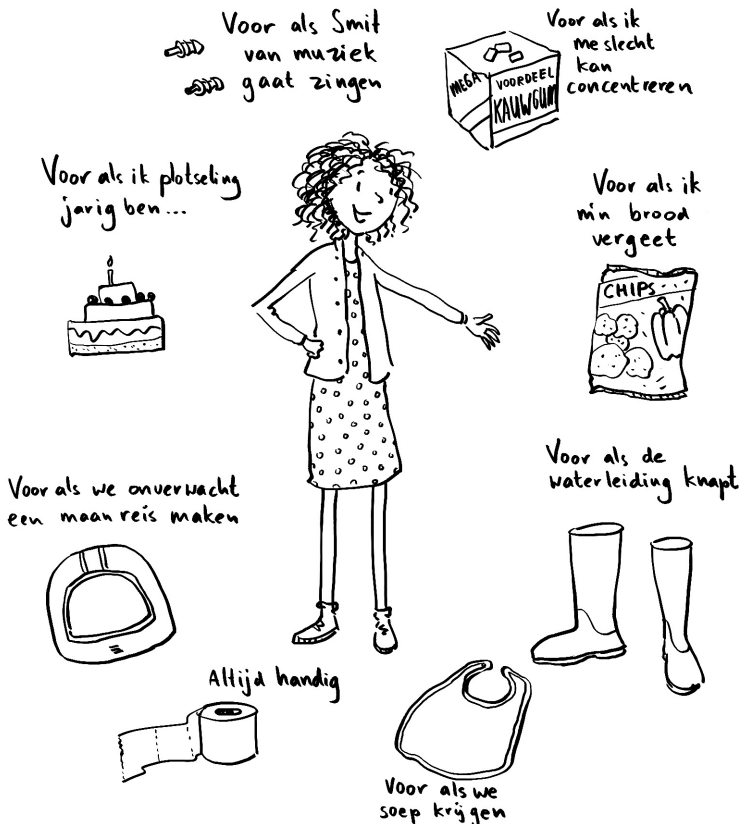 Voor als Smit
van muziek
gaat zingen
Voor als ik
me slecht
kan
concentreren
MEGA
VOORDEEL
KAUWGUM
Voor als ik plotseling
jarig ben...
Voor als ik
m'n brood
vergeet
CHIPS
Voor als we onverwacht
een maanreis maken
Voor als de
waterleiding knapt
Altijd handig
Voor als we
soep krijgen